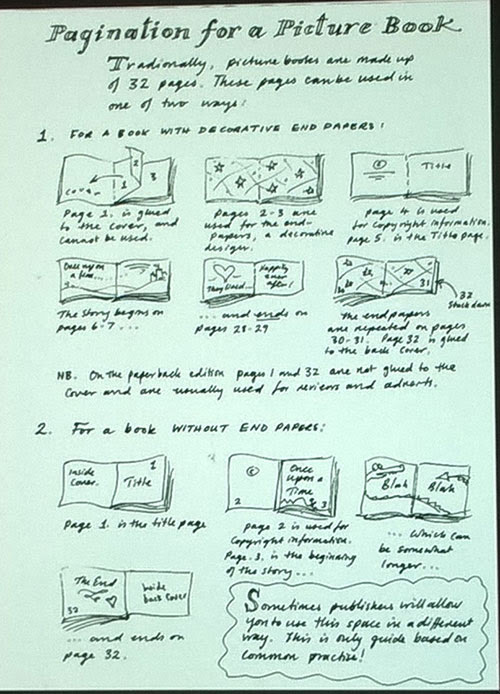 Pagination for a Picture Book
Tradionally, picture books are made up
of 32 pages. These pages can be used in
one of two ways:
1. FOR A BOOK WITH DECORATIVE END PAPERS:
Cover 1 2 3
Page 1. is glued
to the cover, and
cannot be used.
Pages 2-3 are
used for the end-
papers, a decorative
design.
© Title
page 4 is used
for Copyright information.
page 5. is the Title page.
Once upon
a time....
The Story begins on
pages 6-7...
They lived...
Happily
ever
after!
... and ends on
pages 28-29
30 31
32
Stuck down
the endpapers
are repeated on pages
30-31. Page 32 is glued
to the back cover.
NB. On the paperback edition pages 1 and 32 are not glued to the
Cover and are usually used for reviews and adverts.
2. For a book WITHOUT END PAPERS:
Inside
Cover.
1
Title
Page 1. is the title page
©
2
Once
upon a
Time
3
page 2 is used for
Copyright information.
Page 3. is the beginning
of the story...
Blah Blah
... Which can
be somewhat
longer...
The End
32
Inside
back Cover
... and ends on
page 32.
Sometimes publishers will allow
you to use this space in a different
way. This is only guide based on
common practise!